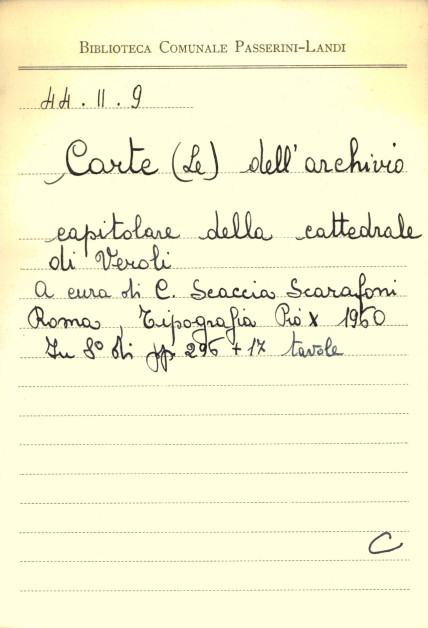 BIBLIOTECA COMUNALE PASSERINI-LANDI
44.II.9
Carte (Le) dell'archivio
capitolare della cattedrale
di Veroli
A cura di C. Scaccia Scarafoni
Roma, Tipografia Pio X 1960
In 8° di pp. 296 + 17 tavole
C